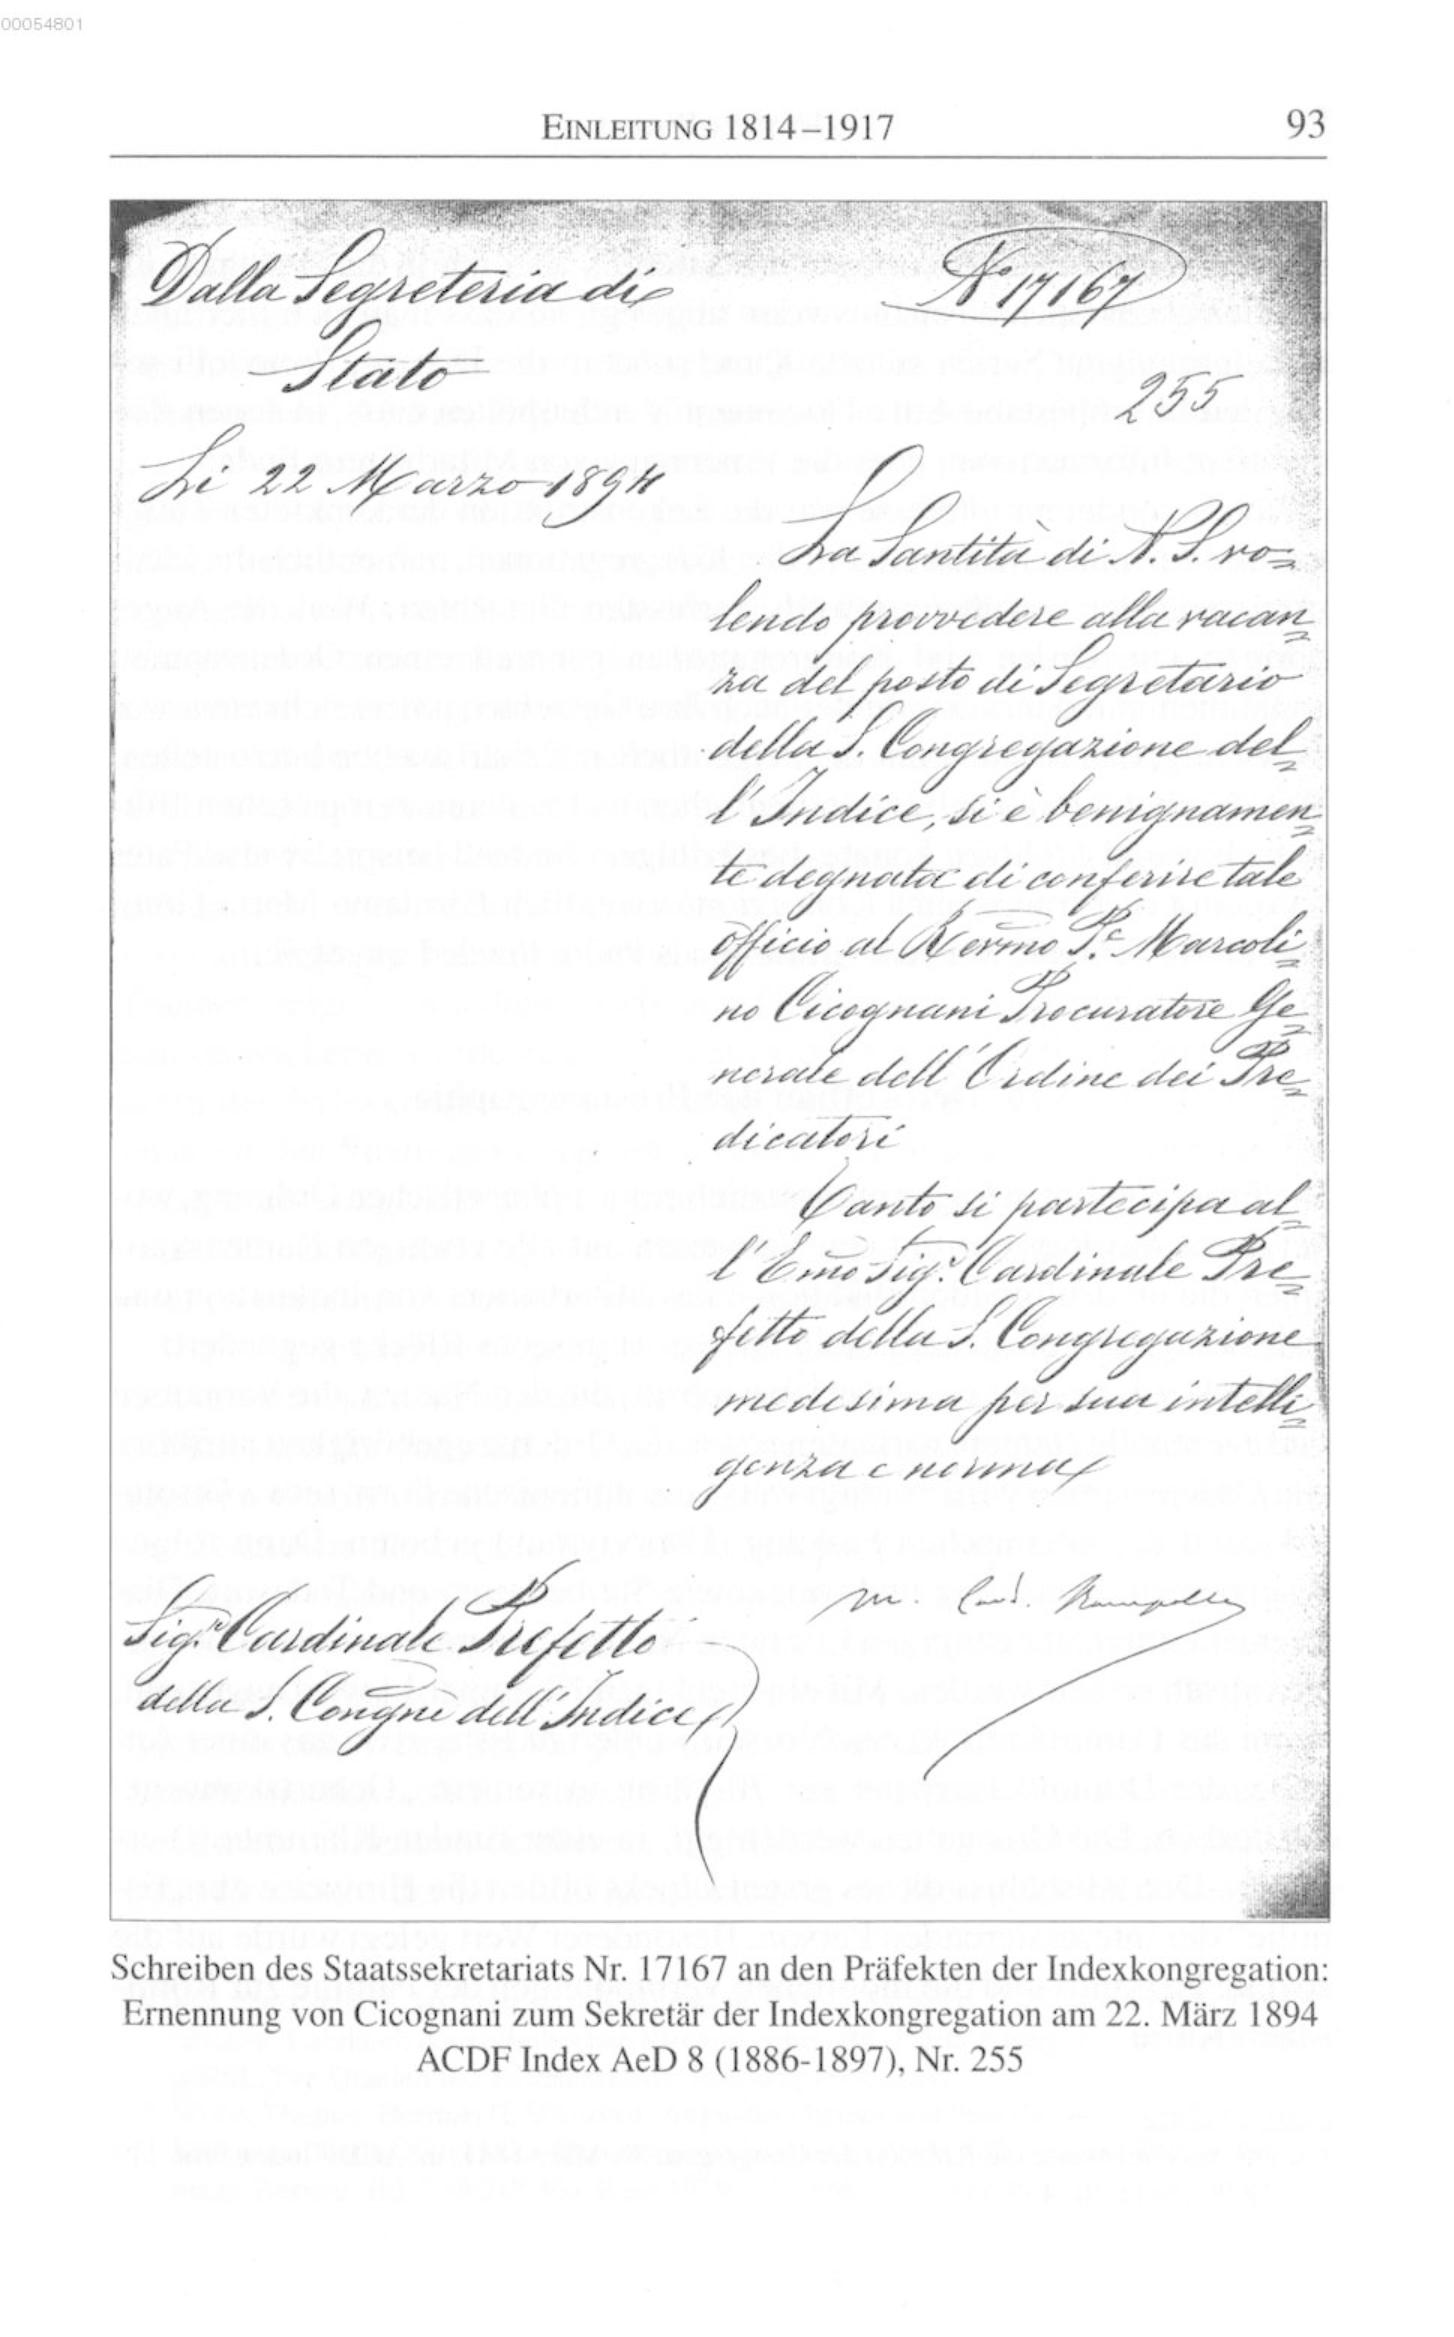 00054801
EINLEITUNG 1814–1917
93
Dalla Segreteria di
Stato
N° 17167
255
Li 22 Marzo 1894
La Santità di N. S. vo=
lendo provvedere alla vacan=
za del posto di Segretario
della S. Congregazione del=
l'Indice, si è benignamen=
te degnata di conferire tale
officio al Revmo P.e Marcoli=
no Cicognani Procuratore Ge=
nerale dell'Ordine dei Pre=
dicatori
Tanto si partecipa al=
l'Emo Sig.r Cardinale Pre=
fetto della S. Congregazione
medesima per sua intelli=
genza e norma
M. Card. Rampolla
Sig.r Cardinale Prefetto
della S. Congne dell'Indice
Schreiben des Staatssekretariats Nr. 17167 an den Präfekten der Indexkongregation:
Ernennung von Cicognani zum Sekretär der Indexkongregation am 22. März 1894
ACDF Index AeD 8 (1886-1897), Nr. 255